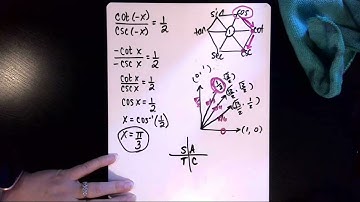 cot(-x)/csc(-x) = 1/2
-cot x/-csc x = 1/2
cot x/csc x = 1/2
cos x = 1/2
x = cos⁻¹(1/2)
x = π/3
sin cos
tan 1 cot
sec csc
(0, 1)
(1/2, √3/2)
(√2/2, √2/2)
(√3/2, 1/2)
0 (1, 0)
S A
T C